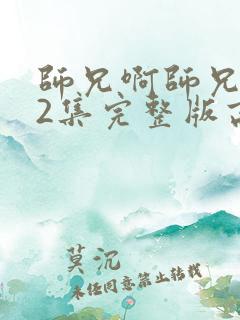 師兄啊師兄
2集完整版
莫沉
未经同意禁止转载